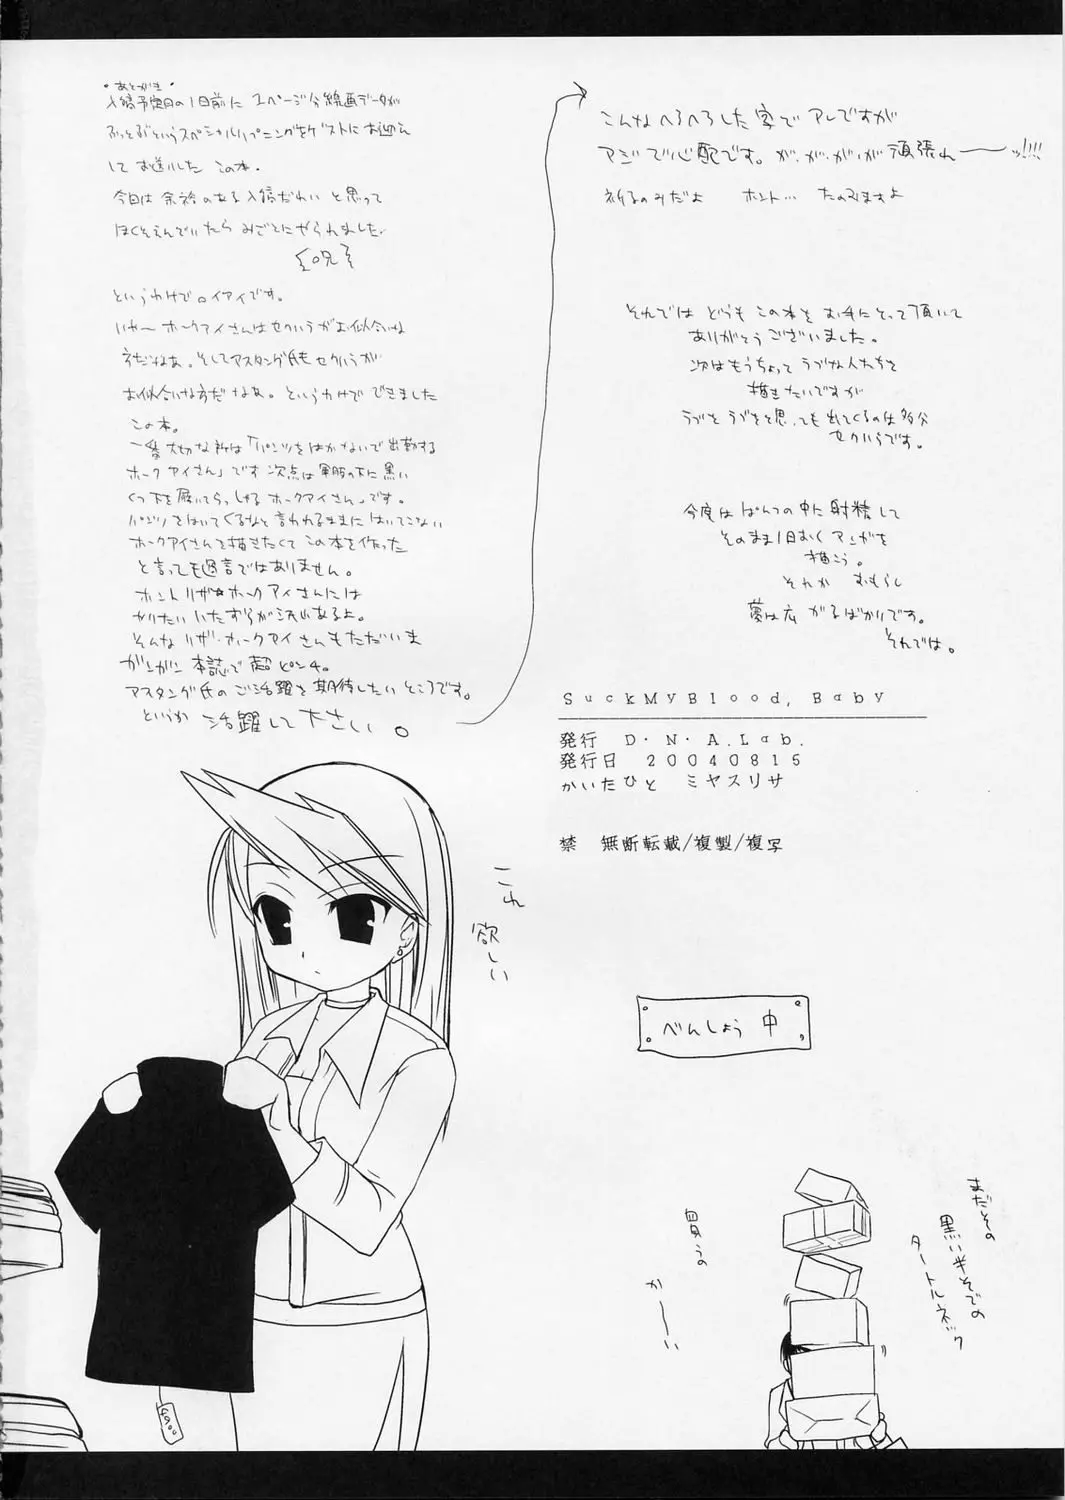 ・あとがき・
入稿予定日の1日前に 1ページ分線画データが
ぶっとぶというスペシャルハプニングをゲストにお迎え
して お送りした この本。
今日は 余裕のある入稿だわい と思って
ほくそえんでいたら みごとにやられました。
というわけでロイアイです。
いや〜 ホークアイさんはセクハラがお似合いな
方だなあ。そしてアスタング氏もセクハラが
お似合いな方だなあ。というわけで できました
この本。
一番大切な所は「パンツをはかないで出勤する
ホークアイさん」です 次点は軍服の下に黒い
くつ下を履いてらっしゃる ホークアイさん」です。
パンツをはいてくるなと言われるままに はいてこない
ホークアイさんを描きたくて この本を作った
と言っても過言ではありません。
ホント リザ・ホークアイさんには
やりたい いたずらが沢山あるよ。
そんな リザ・ホークアイさんもただいま
ガンガン 本誌で 超 ピンチ。
アスタング氏の ご活躍を期待したいところです。
というか 活躍して下さい。
こんなへろへろした字で アレですが
マジで心配です。が、が、が、が 頑張れーーッ!!!!
祈るのみだよ ホント… たのみますよ
それでは どうも この本を お手にとって頂いて
ありがとうございました。
次はもうちょっと ラブな人たちを
描きたいですが
ラブを ラブをと思っても 出てくるのは多分
セクハラです。
今度は ぱんつの中に射精して
そのまま1日おくマンガを
描こう。
それか おもらし
夢は広がるばかりです。
それでは。
SuckMyBlood, Baby
発行 D・N・A.Lab.
発行日 20040815
かいたひと ミヤスリサ
禁 無断転載/複製/複写
これ
欲しい
べんしょう 中
まだその
黒い半そでの
タートルネック
買うの
かーーい